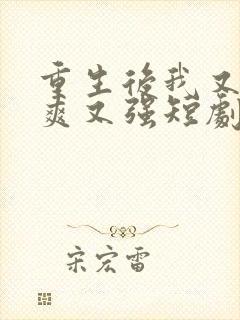 重生後我又
爽又強短劇
宋宏雷